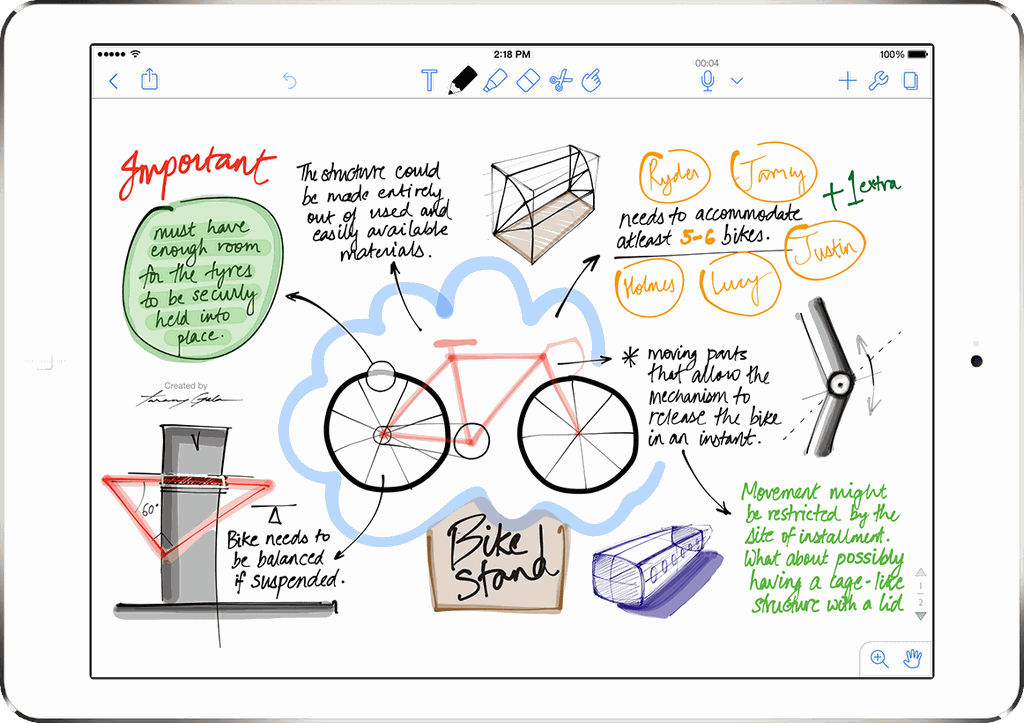 2:18 PM
100%
T
00:04
Important
must have
enough room
for the tyres
to be securly
held into
place.
The structure could
be made entirely
out of used and
easily available
materials.
Ryder
+1 extra
needs to accommodate
atleast 5-6 bikes.
Justin
Holmes
Lucy
* moving parts
that allow the
mechanism to
release the bike
in an instant.
Created by
60°
Bike needs to
be balanced
if suspended.
Bike
Stand
Movement might
be restricted by the
site of installment.
What about possibly
having a cage-like
structure with a lid
1
2